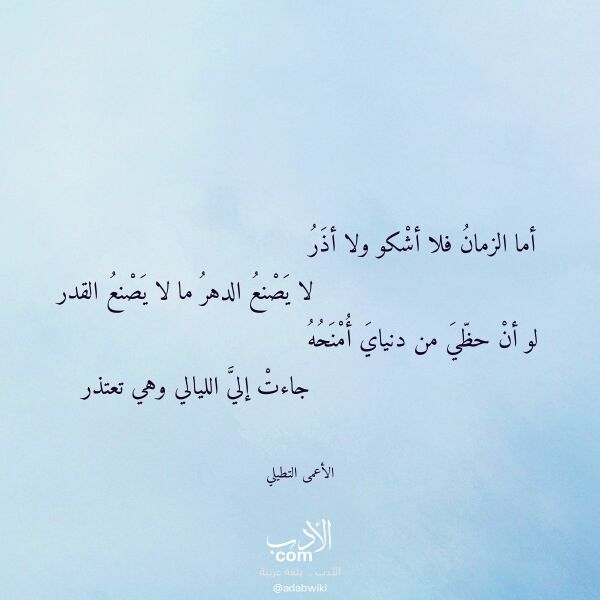 أما الزمانُ فلا أشْكو ولا أذَرُ
لا يَصْنعُ الدهرُ ما لا يَصْنعُ القدر
لو أنْ حظّيَ من دنيايَ أُمْنَحُهُ
جاءتْ إليَّ الليالي وهي تعتذر
الأعمى التطيلي
الأدب
com
الأدب .. بلغة عربية
@adabwiki